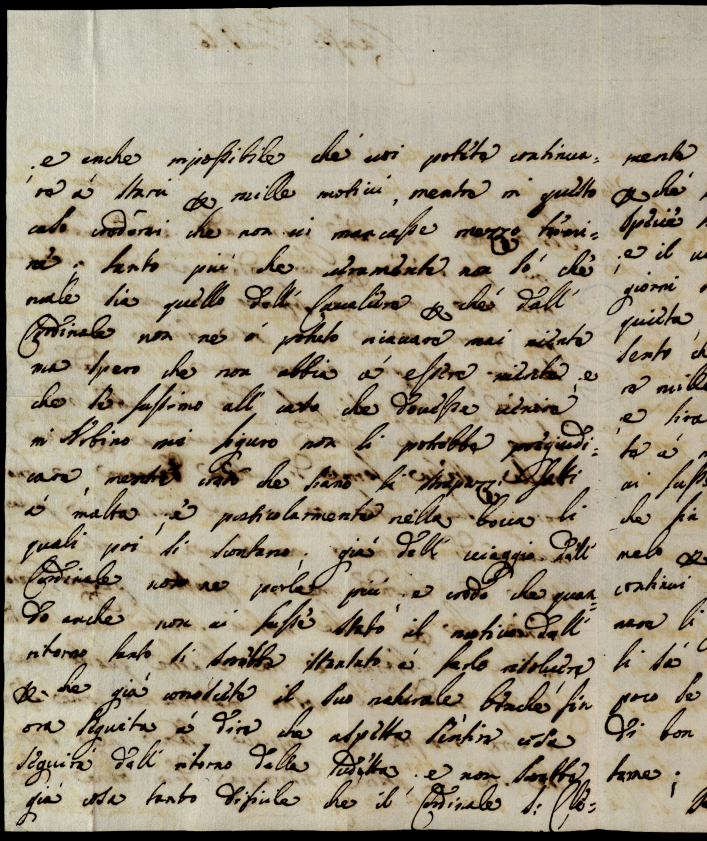 e anche inpossibile che voi potete continua=
re à stare per mille motivi, mentre in questo
caso crederei che non vi mancasse mezzo termi=
ne; tanto più che veramente non sò che
male sia quello dell Cavaliere per che dall
Cardinale non ne ò potuto ricavare mai niente
ma spero che non abbia à essere niente e
che se fussimo all caso che dovesse venire
in Urbino mi figuro non li potrebbe pregiudi=
care, mentre credo che siano li strapazzi fatti
à malta, e particolarmente nella bocca li
quali poi si scontano. già dell viaggio dell
Cardinale non ne parla più e credo che quan=
do anche non vi fusse stato il motivo dell
ritorno tanto si sarebbe stentato à farlo risolvere
per che già conoscete il suo naturale benche fin
ora seguita à dire che aspetta sentire cosa
seguirà dell ritorno delle e non sarebbe
già cosa tanto dificile che il Cardinale S: Cle=
mente
per che
specie
e il
giorni
quieta
sento
re mille
e
te à
vi fusse
che sia
melo per
continui
nare li
li sà
poco se
di bon
tame;